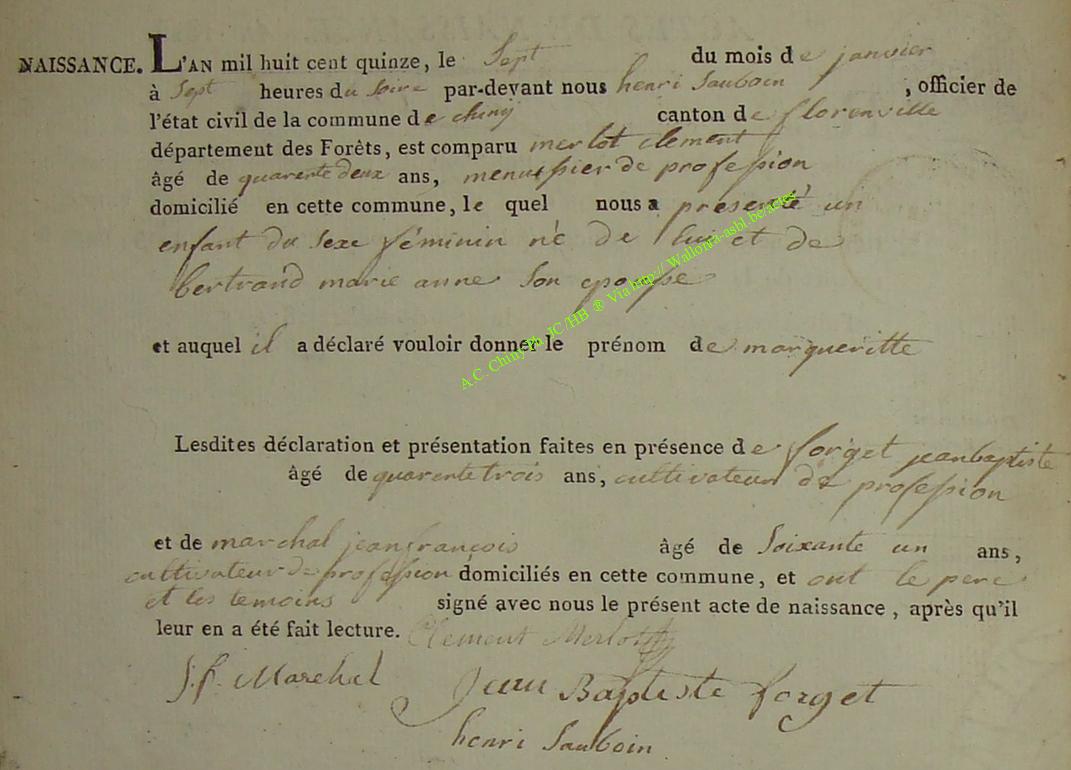 NAISSANCE. L'AN mil huit cent quinze, le Sept du mois de janvier
à Sept heures du soire par-devant nous henri Sauboin ; officier de
l'état civil de la commune de chiny canton de florenville
département des Forêts, est comparu merlot clement
âgé de quarente deux ans, menussier de profession
domicilié en cette commune, le quel nous a présenté un
enfant du sexe féminin né de lui et de
bertrand marie anne son epouse
et auquel il a déclaré vouloir donner le prénom de margueritte
Lesdites déclaration et présentation faites en présence de forget jeanbaptiste
âgé de quarente trois ans, cultivateur de profession
et de marchal jeanfrançois âgé de Soixante un ans,
cultivateur de profession domiciliés en cette commune, et ont le pere
et les temoins signé avec nous le présent acte de naissance, après qu'il
leur en a été fait lecture. Clement Merlot
J. f. Marchal Jean Baptiste forget
henri Sauboin
A.C. Chiny Ph JC/HB ® Via http:// Wallonia-asbl.be/actes